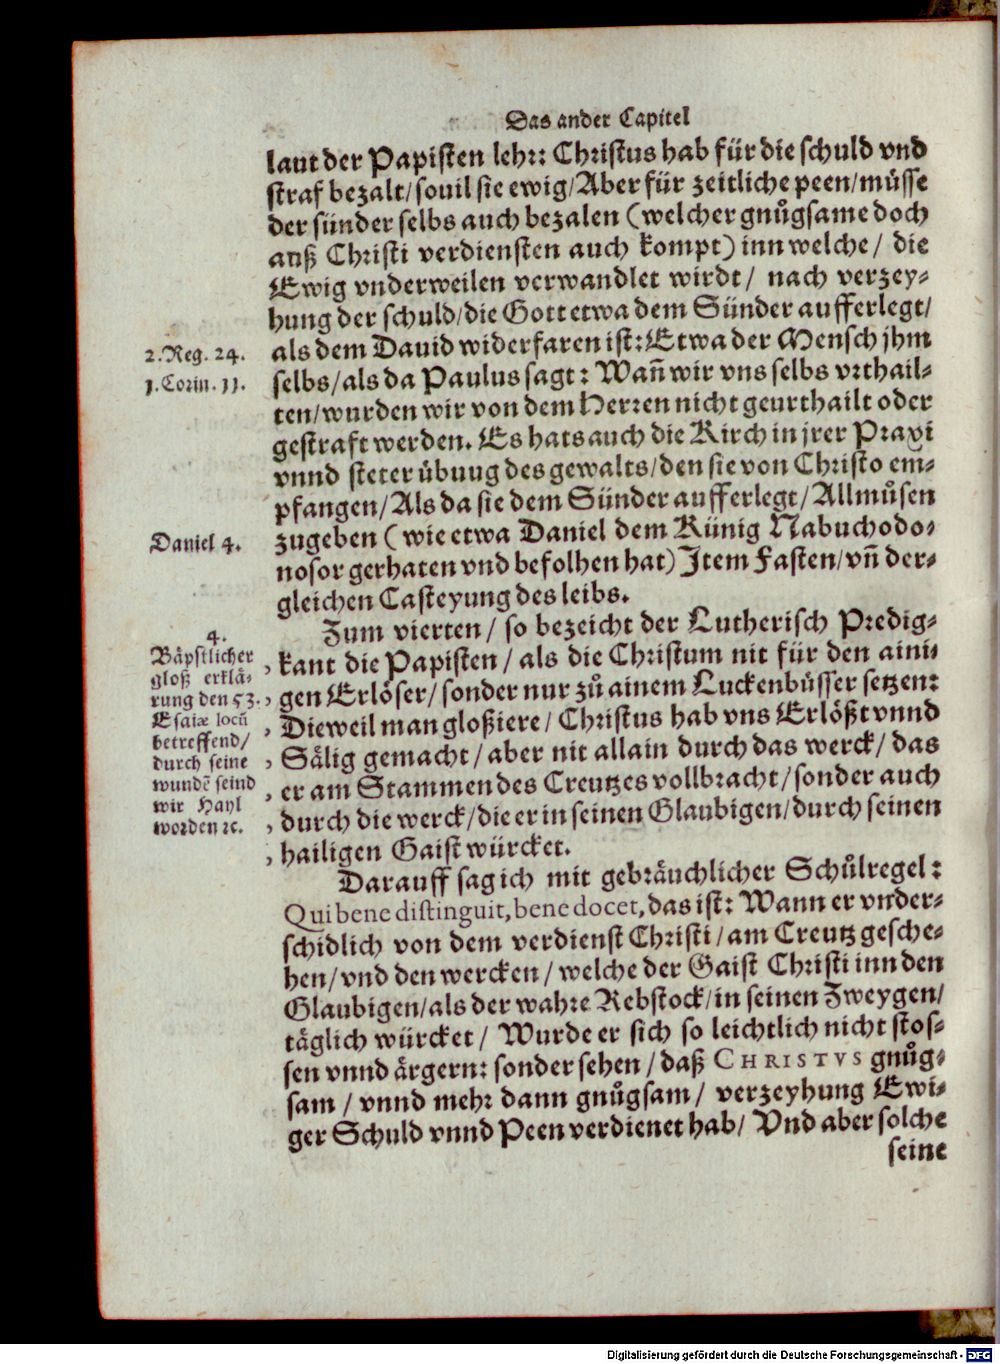 Das ander Capitel
laut der Papisten lehr: Christus hab für die schuld vnd
straf bezalt/ souil sie ewig/ Aber für zeitliche peen/ müsse
der sünder selbs auch bezalen (welcher gnůgsame doch
auß Christi verdiensten auch kompt) inn welche/ die
Ewig vnderweilen verwandlet wirdt/ nach verzey-
hung der schuld/ die Gott etwa dem Sünder aufferlegt/
2. Reg. 24.
als dem Dauid widerfaren ist: Etwa der Mensch jhm
1. Corin. 11.
selbs/ als da Paulus sagt: Wañ wir vns selbs vrthail-
ten/ wurden wir von dem Herren nicht geurthailt oder
gestraft werden. Es hats auch die Kirch in jrer Praxi
vnnd steter übuug des gewalts/ den sie von Christo em-
pfangen/ Als da sie dem Sünder aufferlegt/ Allmůsen
Daniel 4.
zugeben (wie etwa Daniel dem Künig Nabuchodo-
nosor gerhaten vnd befolhen hat) Item Fasten/ vñ der-
gleichen Casteyung des leibs.
Zum vierten/ so bezeicht der Lutherisch Predig-
4.
Bäpstlicher
gloß erklä-
rung den 53.
Esaiæ locũ
betreffend/
durch seine
wundẽ seind
wir Hayl
worden ꝛc.
, kant die Papisten/ als die Christum nit für den aini-
, gen Erlöser/ sonder nur zů ainem Luckenbüsser setzen:
, Dieweil man gloßiere/ Christus hab vns Erlößt vnnd
, Sälig gemacht/ aber nit allain durch das werck/ das
, er am Stammen des Creutzes vollbracht/ sonder auch
, durch die werck/ die er in seinen Glaubigen/ durch seinen
, hailigen Gaist würcket.
Darauff sag ich mit gebräuchlicher Schůlregel:
Qui bene distinguit, bene docet, das ist: Wann er vnder-
schidlich von dem verdienst Christi/ am Creutz gesche-
hen/ vnd den wercken/ welche der Gaist Christi inn den
Glaubigen/ als der wahre Rebstock/ in seinen Zweygen/
täglich würcket/ Wurde er sich so leichtlich nicht stos-
sen vnnd ärgern: sonder sehen/ daß CHRISTVS gnůg-
sam/ vnnd mehr dann gnůgsam/ verzeyhung Ewi-
ger Schuld vnnd Peen verdienet hab/ Vnd aber solche
seine
Digitalisierung gefördert durch die Deutsche Forschungsgemeinschaft - DFG